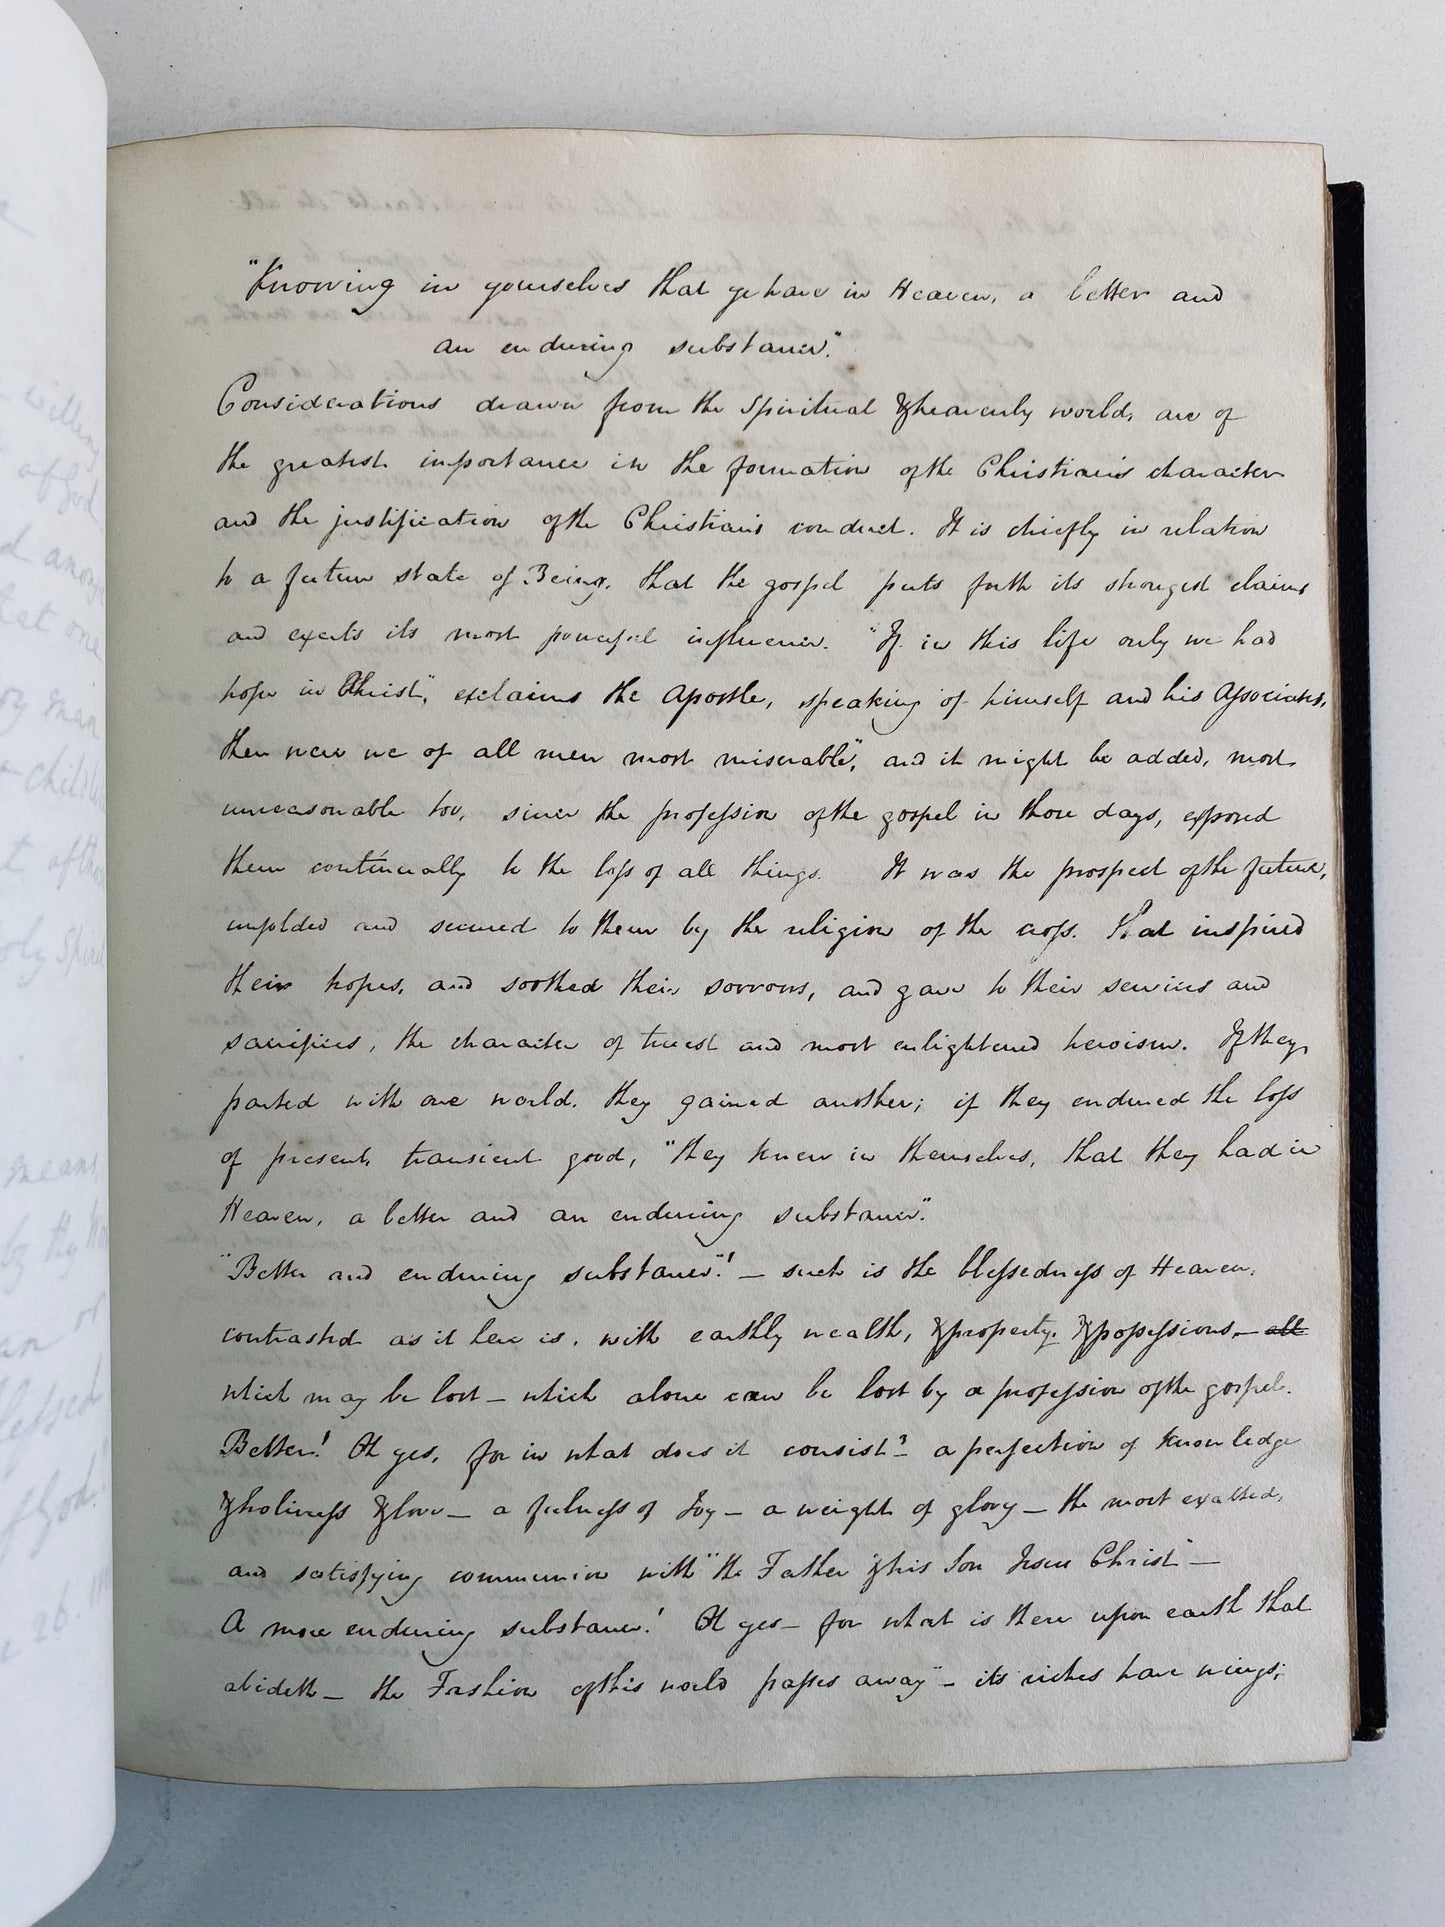 "Knowing in yourselves that ye have in Heaven, a better and
an enduring substance."
Considerations drawn from the Spiritual & heavenly world, are of
the greatest importance in the formation of the Christian's character
and the justification of the Christian's conduct. It is chiefly in relation
to a future state of Being, that the gospel puts forth its strongest claims
and exerts its most powerful influence. "If in this life only we had
hope in Christ", exclaims the Apostle, speaking of himself and his Associates,
then were we of all men most miserable", and it might be added, most
unreasonable too, since the profession of the gospel in those days, exposed
them continually to the loss of all things. It was the prospect of the future,
unfolded and secured to them by the religion of the cross. that inspired
their hopes, and soothed their sorrows, and gave to their services and
sacrifices, the character of truest and most enlightened heroism. If they
parted with one world. they gained another; if they endured the loss
of present, transient good, "they knew in themselves, that they had in
Heaven, a better and an enduring substance."
"Better and enduring substance"! — such is the blessedness of Heaven,
contrasted as it here is, with earthly wealth, & property. & possessions, — all
which may be lost — which alone can be lost by a profession of the gospel.
Better! Oh yes, for in what does it consist? — a perfection of knowledge
& holiness & love — a fulness of Joy — a weight of glory — the most exalted,
and satisfying communion with "the Father & his Son Jesus Christ" —
A more enduring substance! Oh yes — for what is there upon earth that
abideth — the Fashion of this world passes away" — its riches have wings;
willing
of God
one
Holy Spirit
means
by thy
of
blessed
of God.